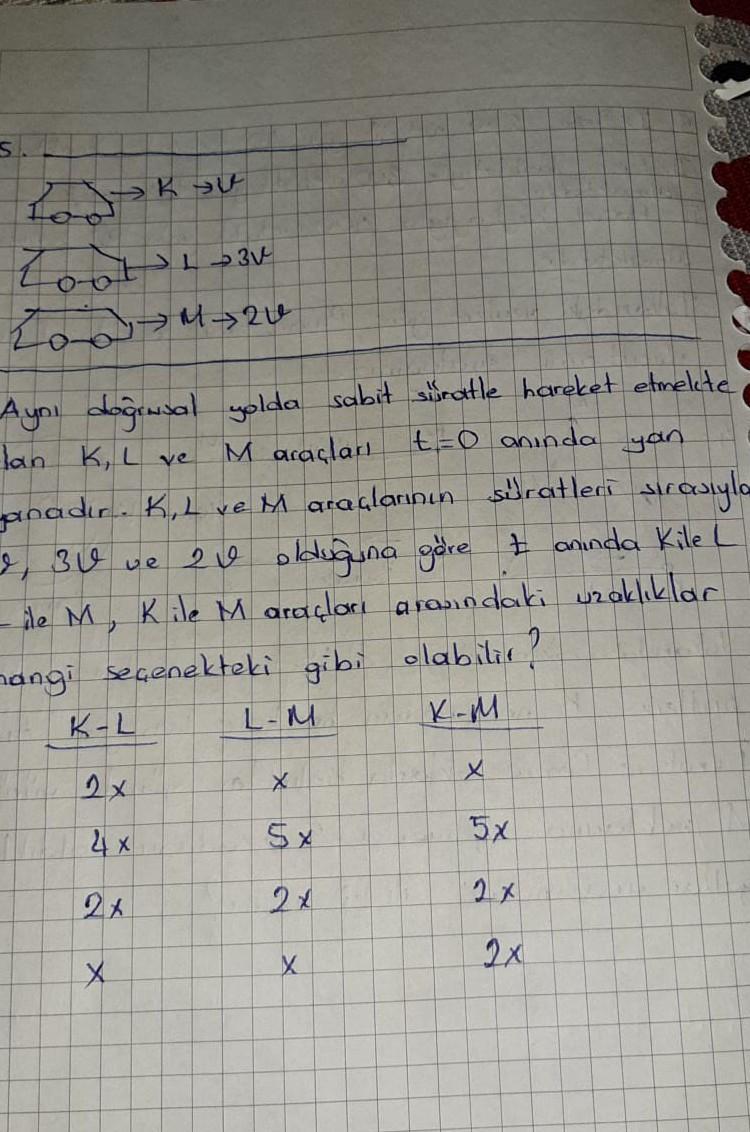 5.
→ K → ϑ
→ L → 3ϑ
→ M → 2ϑ
Aynı doğrusal yolda sabit süratle hareket etmekte
lan K, L ve M araçları t=0 anında yan
anadır. K, L ve M araçlarının süratleri sırasıyla
ϑ, 3ϑ ve 2ϑ olduğuna göre t anında K ile L
ile M, K ile M araçları arasındaki uzaklıklar
hangi seçenekteki gibi olabilir?
K-L L-M K-M
2x x x
4x 5x 5x
2x 2x 2x
x x 2x